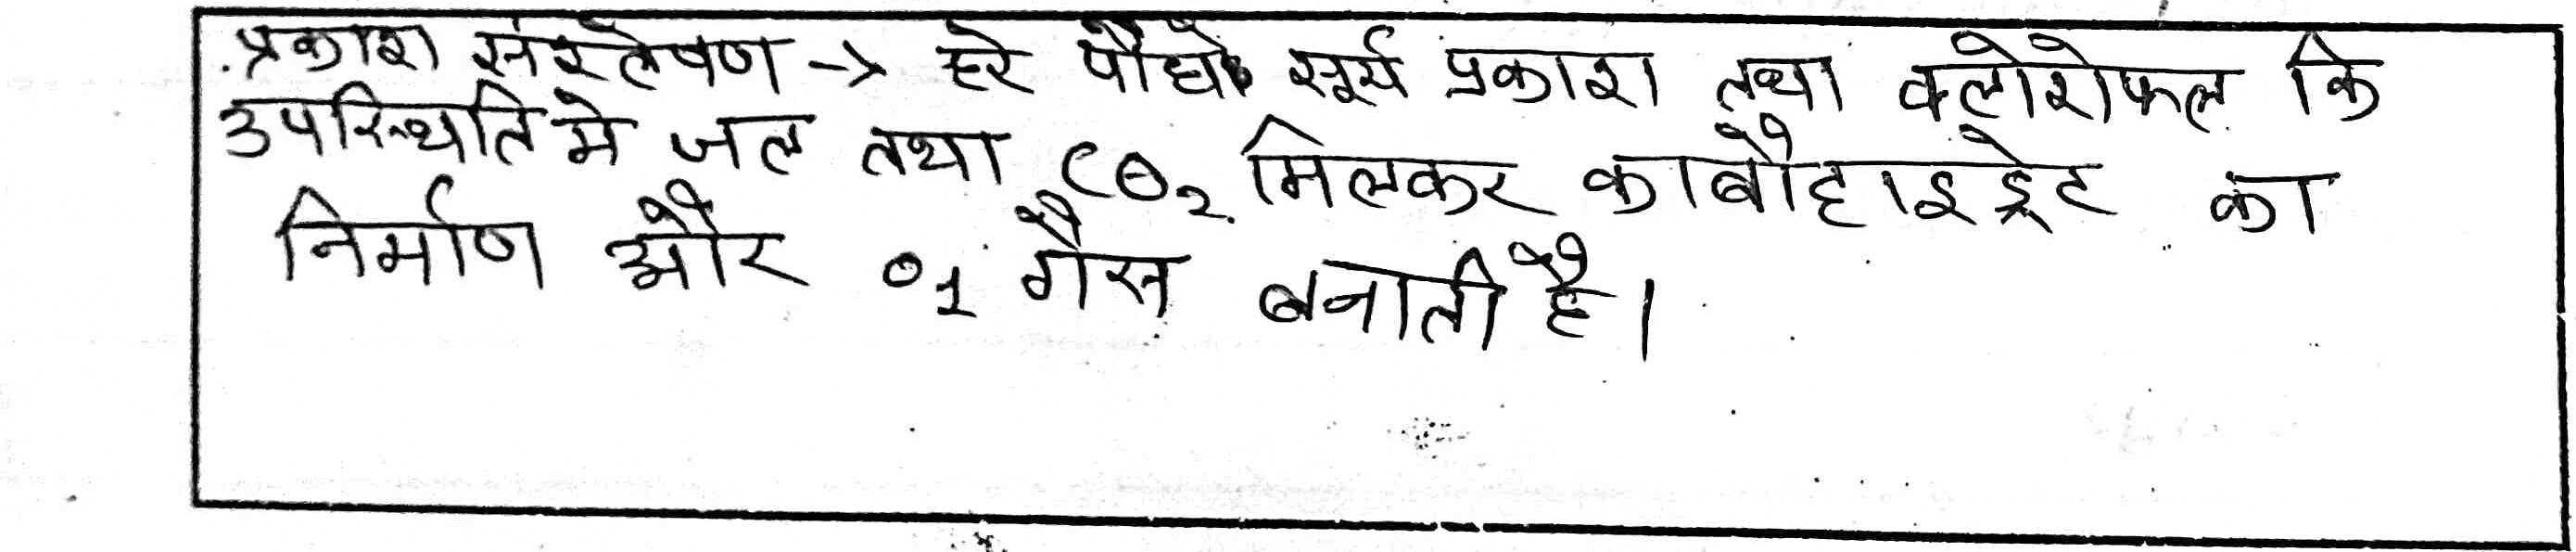 प्रकाश संश्लेषण -> हरे पौधे सूर्य प्रकाश तथा क्लोरोफल कि
उपस्थिति मे जल तथा CO₂ मिलकर काबौहाइड्रेट का
निर्माण और O₂ गैस बनाती है।